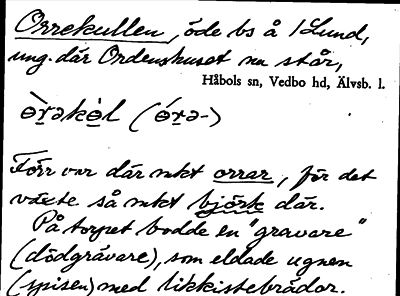 Orrekullen, öde bs å 1 Lund,
ung. där Ordenshuset nu står,
Håbols sn, Vedbo hd, Älvsb. l.
Förr var där mkt orrar, för det
växte så mkt björk där.
På torpet bodde en "gravare"
(dödgrävare), som eldade ugnen
(spisen) med likkistebrädor.